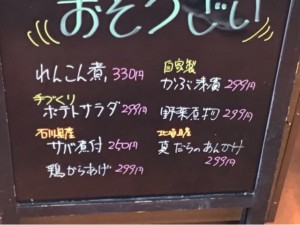 おそうざい
れんこん煮 330円
手づくり
ポテトサラダ 299円
石川県産
サバ煮付 260円
鶏からあげ 299円
自家製
かぶ漬 299円
野菜煮物 299円
北海道産
真だらのあんかけ
299円